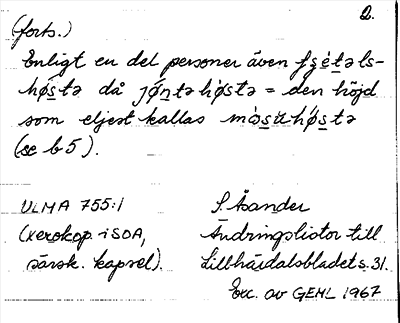 2.
(forts.)
Enligt en del personer även fsétəls-
hǿstə då jǿntə hǿstə = den höjd
som eljest kallas mòsuhǿstə
(se b5).
ULMA 755:1
(xerokop. i SOA,
särsk. kapsel).
S. Åsander
Ändringslistor till
Lillhärdalsbladet s. 31.
Exc. av GEHL 1967